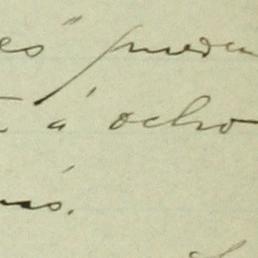 es" pueden
á ocho
más.